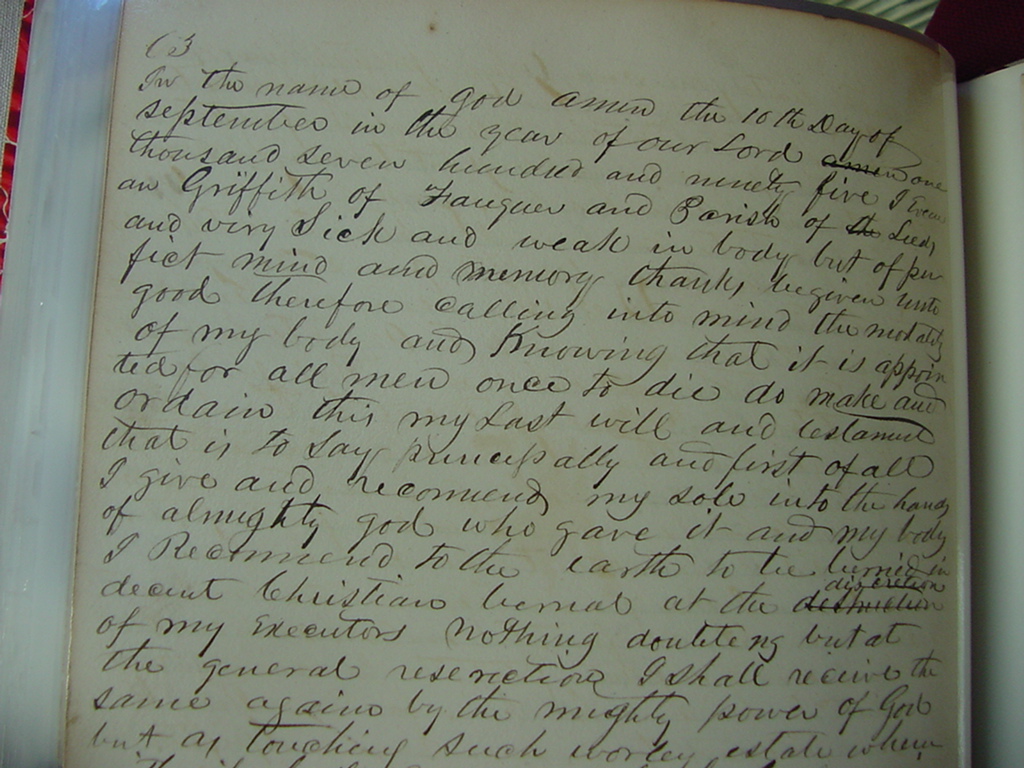 63
In the name of god amen the 10th Day of
september in the year of our Lord amen one
thousand seven hundred and ninety five I Evan
an Griffith of Fauquer and Parish of th Leeds,
and very Sick and weak in body but of per
fict mind and memory thanks be given unto
good therefore calling into mind the motality
of my body and Knowing that it is appoin
ted for all men once to die do make and
ordain this my Last will and testament
that is to say principally and first of all
I give and recommend my sole into the hands
of almighty god who gave it and my body
I Recommend to the earth to be buried in
decent Christian berial at the destruction discretion
of my Executors nothing doubteng but at
the general reserection I shall receive the
same again by the mighty power of God
but as touching such worley estate where